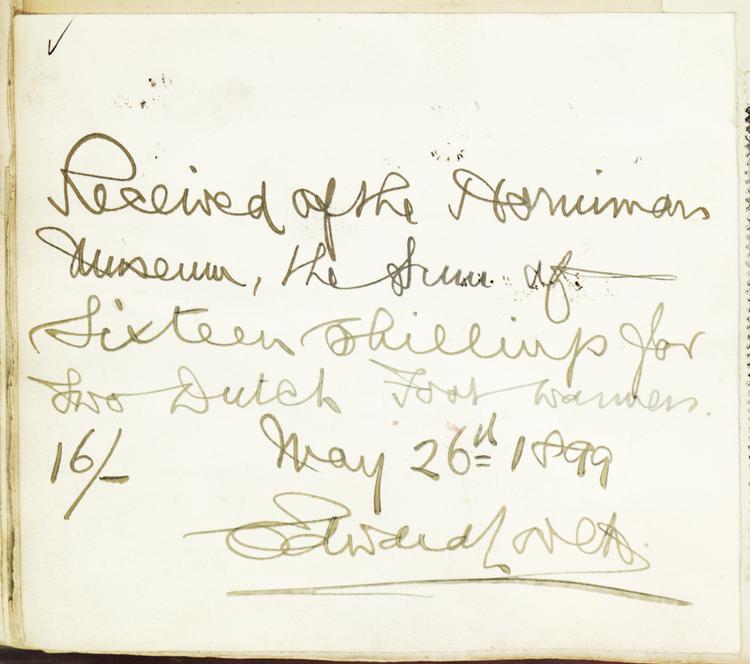 Received of the Horniman
Museum, the Sum of
Sixteen Shillings for
Two Dutch Foot warmers.
16/- May 26d 1899
Edward Lovett.